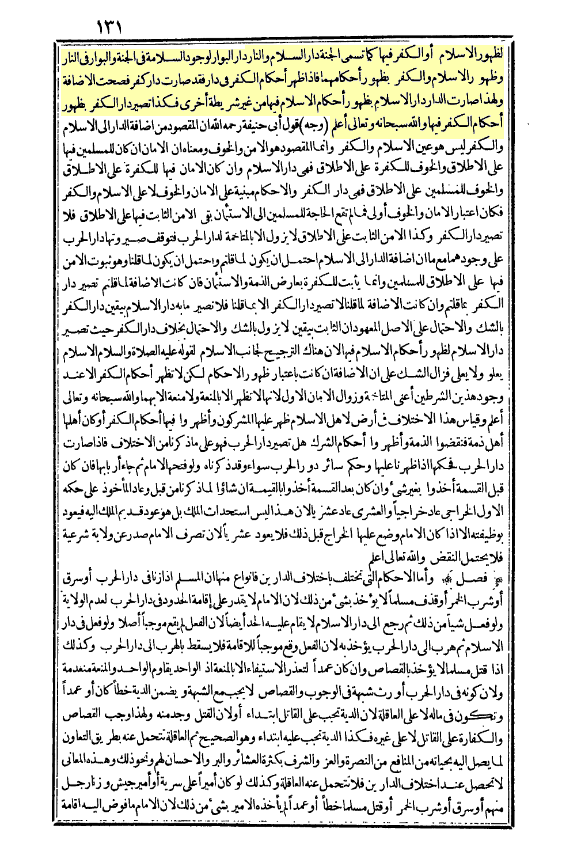 ١٣١
لظهور الاسلام أو الكفر فيها كما تسمى الجنة دار السلام والنار دار البوار لوجود السلامة فى الجنة والبوار فى النار
وظهور الاسلام والكفر بظهور أحكامهما فاذا ظهر أحكام الكفر فى دار فقد صارت دار كفر فصحت الاضافة
ولهذا صارت الدار دار الاسلام بظهور أحكام الاسلام فيها من غير شريطة أخرى فكذا تصير دار الكفر بظهور
أحكام الكفر فيها والله سبحانه وتعالى أعلم (وجه) قول أبى حنيفة رحمه الله ان المقصود من اضافة الدار الى الاسلام
والكفر ليس هو عين الاسلام والكفر وانما المقصود هو الامن والخوف ومعناه ان الامان ان كان للمسلمين فيها
على الاطلاق والخوف للكفرة على الاطلاق فهى دار الاسلام وان كان الامان فيها للكفرة على الاطلاق
والخوف للمسلمين على الاطلاق فهى دار الكفر والاحكام مبنية على الامان والخوف لا على الاسلام والكفر
فكان اعتبار الامان والخوف أولى فما لم تقع الحاجة للمسلمين الى الاستئمان بقى الامن الثابت فيها على الاطلاق فلا
تصير دار الكفر وكذا الامن الثابت على الاطلاق لا يزول الا بالمتاخمة لدار الحرب فتوقف صيرورتها دار الحرب
على وجودهما مع ما ان اضافة الدار الى الاسلام احتمل ان يكون لما قلتم واحتمل ان يكون لما قلنا وهو ثبوت الامن
فيها على الاطلاق للمسلمين وانما يثبت للكفرة بعارض الذمة والاستئمان فان كانت الاضافة لما قلتم تصير دار
الكفر بما قلتم وان كانت الاضافة لما قلنا لا تصير دار الكفر الا بما قلنا فلا تصير ما به دار الاسلام بيقين دار الكفر
بالشك والاحتمال على الاصل المعهود ان الثابت بيقين لا يزول بالشك والاحتمال بخلاف دار الكفر حيث تصير
دار الاسلام لظهور أحكام الاسلام فيها لان هناك الترجيح لجانب الاسلام لقوله عليه الصلاة والسلام الاسلام
يعلو ولا يعلى فزال الشك على ان الاضافة ان كانت باعتبار ظهور الاحكام لكن لا تظهر أحكام الكفر الا عند
وجود هذين الشرطين أعنى المتاخمة وزوال الامان الاول لانها لا تظهر الا بالمنعة ولا منعة الا بهما والله سبحانه وتعالى
أعلم وقياس هذا الاختلاف فى أرض لاهل الاسلام ظهر عليها المشركون وأظهروا فيها أحكام الكفر أو كان أهلها
أهل ذمة فنقضوا الذمة وأظهروا أحكام الشرك هل تصير دار الحرب فهو على ما ذكرنا من الاختلاف فاذا صارت
دار الحرب فحكمها اذا ظهرنا عليها وحكم سائر دور الحرب سواء وقد ذكرناه ولو فتحها الامام ثم جاء أربابها فان كان
قبل القسمة أخذوا بغير شئ وان كان بعد القسمة أخذوا بالقيمة ان شاؤا لما ذكرنا من قبل وعاد المأخوذ على حكمه
الاول الخراجى عاد خراجيا والعشرى عاد عشريا لان هذا ليس استحداث الملك بل هو عود قديم الملك اليه فيعود
بوظيفته الا اذا كان الامام وضع عليها الخراج قبل ذلك فلا يعود عشريا لان تصرف الامام صدر عن ولاية شرعية
فلا يحتمل النقض والله تعالى اعلم
﴿ فصل ﴾ وأما الاحكام التى تختلف باختلاف الدارين فأنواع منها ان المسلم اذا زنا فى دار الحرب أو سرق
أو شرب الخمر أو قذف مسلما لا يؤخذ بشئ من ذلك لان الامام لا يقدر على إقامة الحدود فى دار الحرب لعدم الولاية
ولو فعل شيأ من ذلك ثم رجع الى دار الاسلام لا يقام عليه الحد أيضا لان الفعل لم يقع موجبا أصلا ولو فعل فى دار
الاسلام ثم هرب الى دار الحرب يؤخذ به لان الفعل وقع موجبا للاقامة فلا يسقط بالهرب الى دار الحرب وكذلك
اذا قتل مسلما لا يؤخذ بالقصاص وان كان عمدا لتعذر الاستيفاء الا بالمنعة اذ الواحد يقاوم الواحد والمنعة منعدمة
ولان كونه فى دار الحرب أورث شبهة فى الوجوب والقصاص لا يجب مع الشبهة ويضمن الدية خطأ كان أو عمدا
وتكون فى ماله لا على العاقلة لان الدية تجب على القاتل ابتداء أو لان القتل وجد منه ولهذا وجب القصاص
والكفارة على القاتل لا على غيره فكذا الدية تجب عليه ابتداء وهو الصحيح ثم العاقلة تتحمل عنه بطريق التعاون
لما يصل اليه بحياته من المنافع من النصرة والعز والشرف بكثرة العشائر والبر والاحسان لهم ونحو ذلك وهذه المعانى
لا تحصل عند اختلاف الدارين فلا تتحمل عنه العاقلة وكذلك لو كان أميرا على سرية أو أمير جيش وزنا رجل
منهم أو سرق أو شرب الخمر أو قتل مسلما خطأ أو عمدا لم يأخذه الامير بشئ من ذلك لان الامام ما فوض اليه اقامة